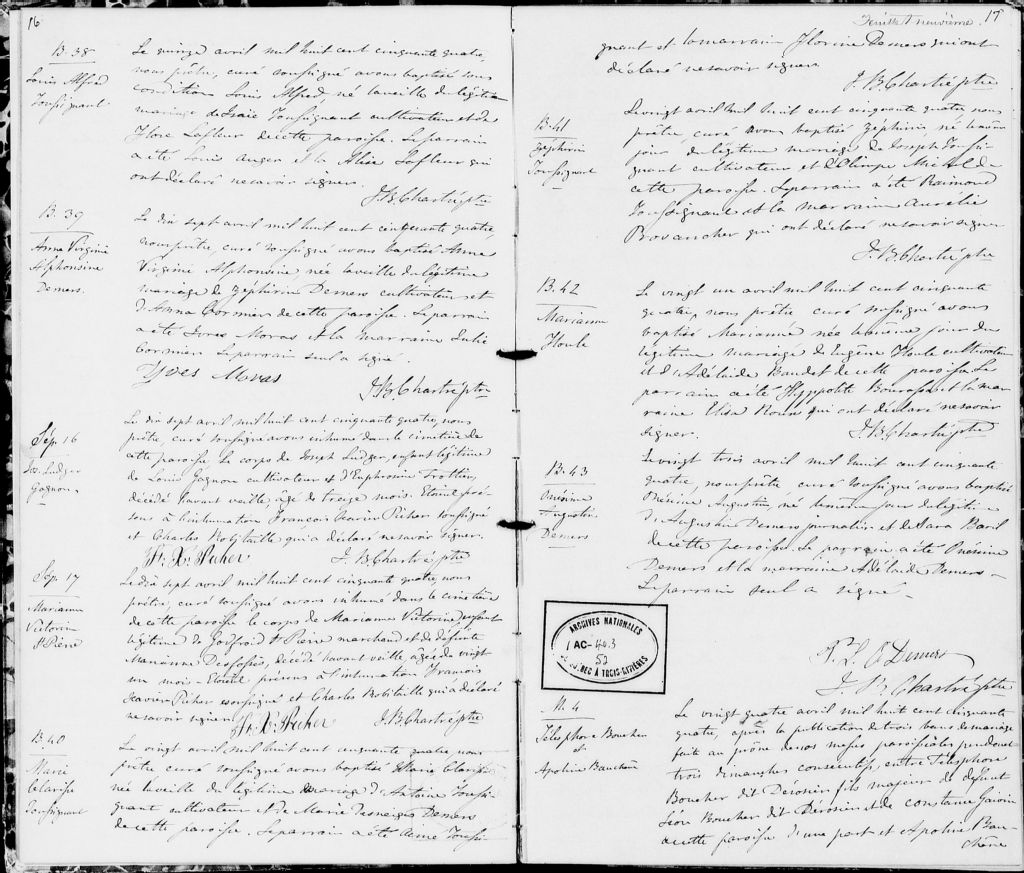 16
B. 38
Louis Alfred
Toussignant
Le quinze avril mil huit cent cinquante quatre,
nous prêtre, curé soussigné avons baptisé sous
condition Louis Alfred, né la veille du légitime
mariage de Isaïe Toussignant cultivateur et de
Flore Lafleur de cette paroisse. Le parrain
a été Louis Auger et la Alise Lafleur qui
ont déclaré ne savoir signer.
J. B. Chartré ptre
B. 39
Anna Virginie
Alphonsine
Demers.
Le dix sept avril mil huit cent cinquante quatre,
nous prêtre, curé soussigné avons baptisé Anna
Virginie Alphonsine née la veille du légitime
mariage de Zéphirin Demers cultivateur et
d'Anna Cormier de cette paroisse. Le parrain
a été Yves Moras et la marraine Julie
Cormier. Le parrain seul a signé.
Yves Moras
J. B. Chartré ptre
Sép. 16
Jos. Ludger
Gagnon
Le dix sept avril mil huit cent cinquante quatre, nous
prêtre, curé soussigné avons inhumé dans le cimetière de
cette paroisse le corps de Joseph Ludger, enfant légitime
de Louis Gagnon cultivateur et d'Euphrosine Trottier,
décédé l'avant veille, âgé de treize mois. Etaient pré-
sens à l'inhumation François Xavier Picher soussigné
et Charles Robitaille qui a déclaré ne savoir signer.
F. X. Picher
J. B. Chartré ptre
Sép. 17
Marianne
Victorine
St Pierre
Le dix sept avril mil huit cent cinquante quatre, nous
prêtre, curé soussigné avons inhumé dans le cimetière
de cette paroisse le corps de Marianne Victorine, enfant
légitime de Godfroid St Pierre marchand et de défunte
Marianne Desfossés, décédé l'avant veille, âgée de vingt
un mois. Etaient présens à l'inhumation François
Xavier Picher soussigné et Charles Robitaille qui a déclaré
ne savoir signer.
F. X. Picher
J. B. Chartré ptre
B. 40
Marie
Clarisse
Toussignant
Le vingt avril mil huit cent cinquante quatre, nous
prêtre curé soussigné avons baptisé Marie Clarisse
née la veille du légitime mariage d'Antoine Toussi-
gnant cultivateur et de Marie Desneiges Demers
de cette paroisse. Le parrain a été Toussi-
feuillet neuvième. 17
gnant et la marraine Florine Demers qui ont
déclaré ne savoir signer
J. B. Chartré ptre
B. 41
Zéphirin
Toussignant
Le vingt avril mil huit cent cinquante quatre, nous
prêtre curé avons baptisé Zéphirin né le même
jour du légitime mariage de Joseph Toussi-
gnant cultivateur et d'Olimpe Michel de
cette paroisse. Le parrain a été Raimond
Toussignant et la marraine Aurélie
qui ont déclaré ne savoir signer
J. B. Chartré ptre
B. 42
Marianne
Houle
Le vingt un avril mil huit cent cinquante
quatre, nous prêtre curé soussigné avons
baptisé Marianne née le même jour du
légitime mariage de Eugène Houle cultivateur
et d'Adélaïde Baudet de cette paroisse. Le
parrain a été Hyppolite et la mar-
raine Elisa qui ont déclaré ne savoir
signer.
J. B. Chartré ptre
B. 43
Onésime
Augustin
Demers
Le vingt trois avril mil huit cent cinquante
quatre, nous prêtre, curé soussigné avons baptisé
Onésime Augustin, né le même jour du légitime
d'Augustin Demers journalier et de Sara Baril
de cette paroisse. Le parrain a été Onésime
Demers et la marraine Adélaïde Demers
Le parrain seul a signé.
ARCHIVES NATIONALES
AC-443
52
QUÉBEC À TROIS-RIVIÈRES
P. L. O Demers
J. B. Chartré ptre
M. 4
Télesphore Boucher
et
Apoline Beauchêne
Le vingt quatre avril mil huit cent cinquante
quatre, après la publication de trois bans de mariage
faite au prône de nos messes paroissiales pendant
trois dimanches consécutifs, entre Télesphore
Boucher dit Dérosier fils majeur de défunt
Léon Boucher dit Dérosier et de Constance
de cette paroisse d'une part et Apoline Beau-
chêne